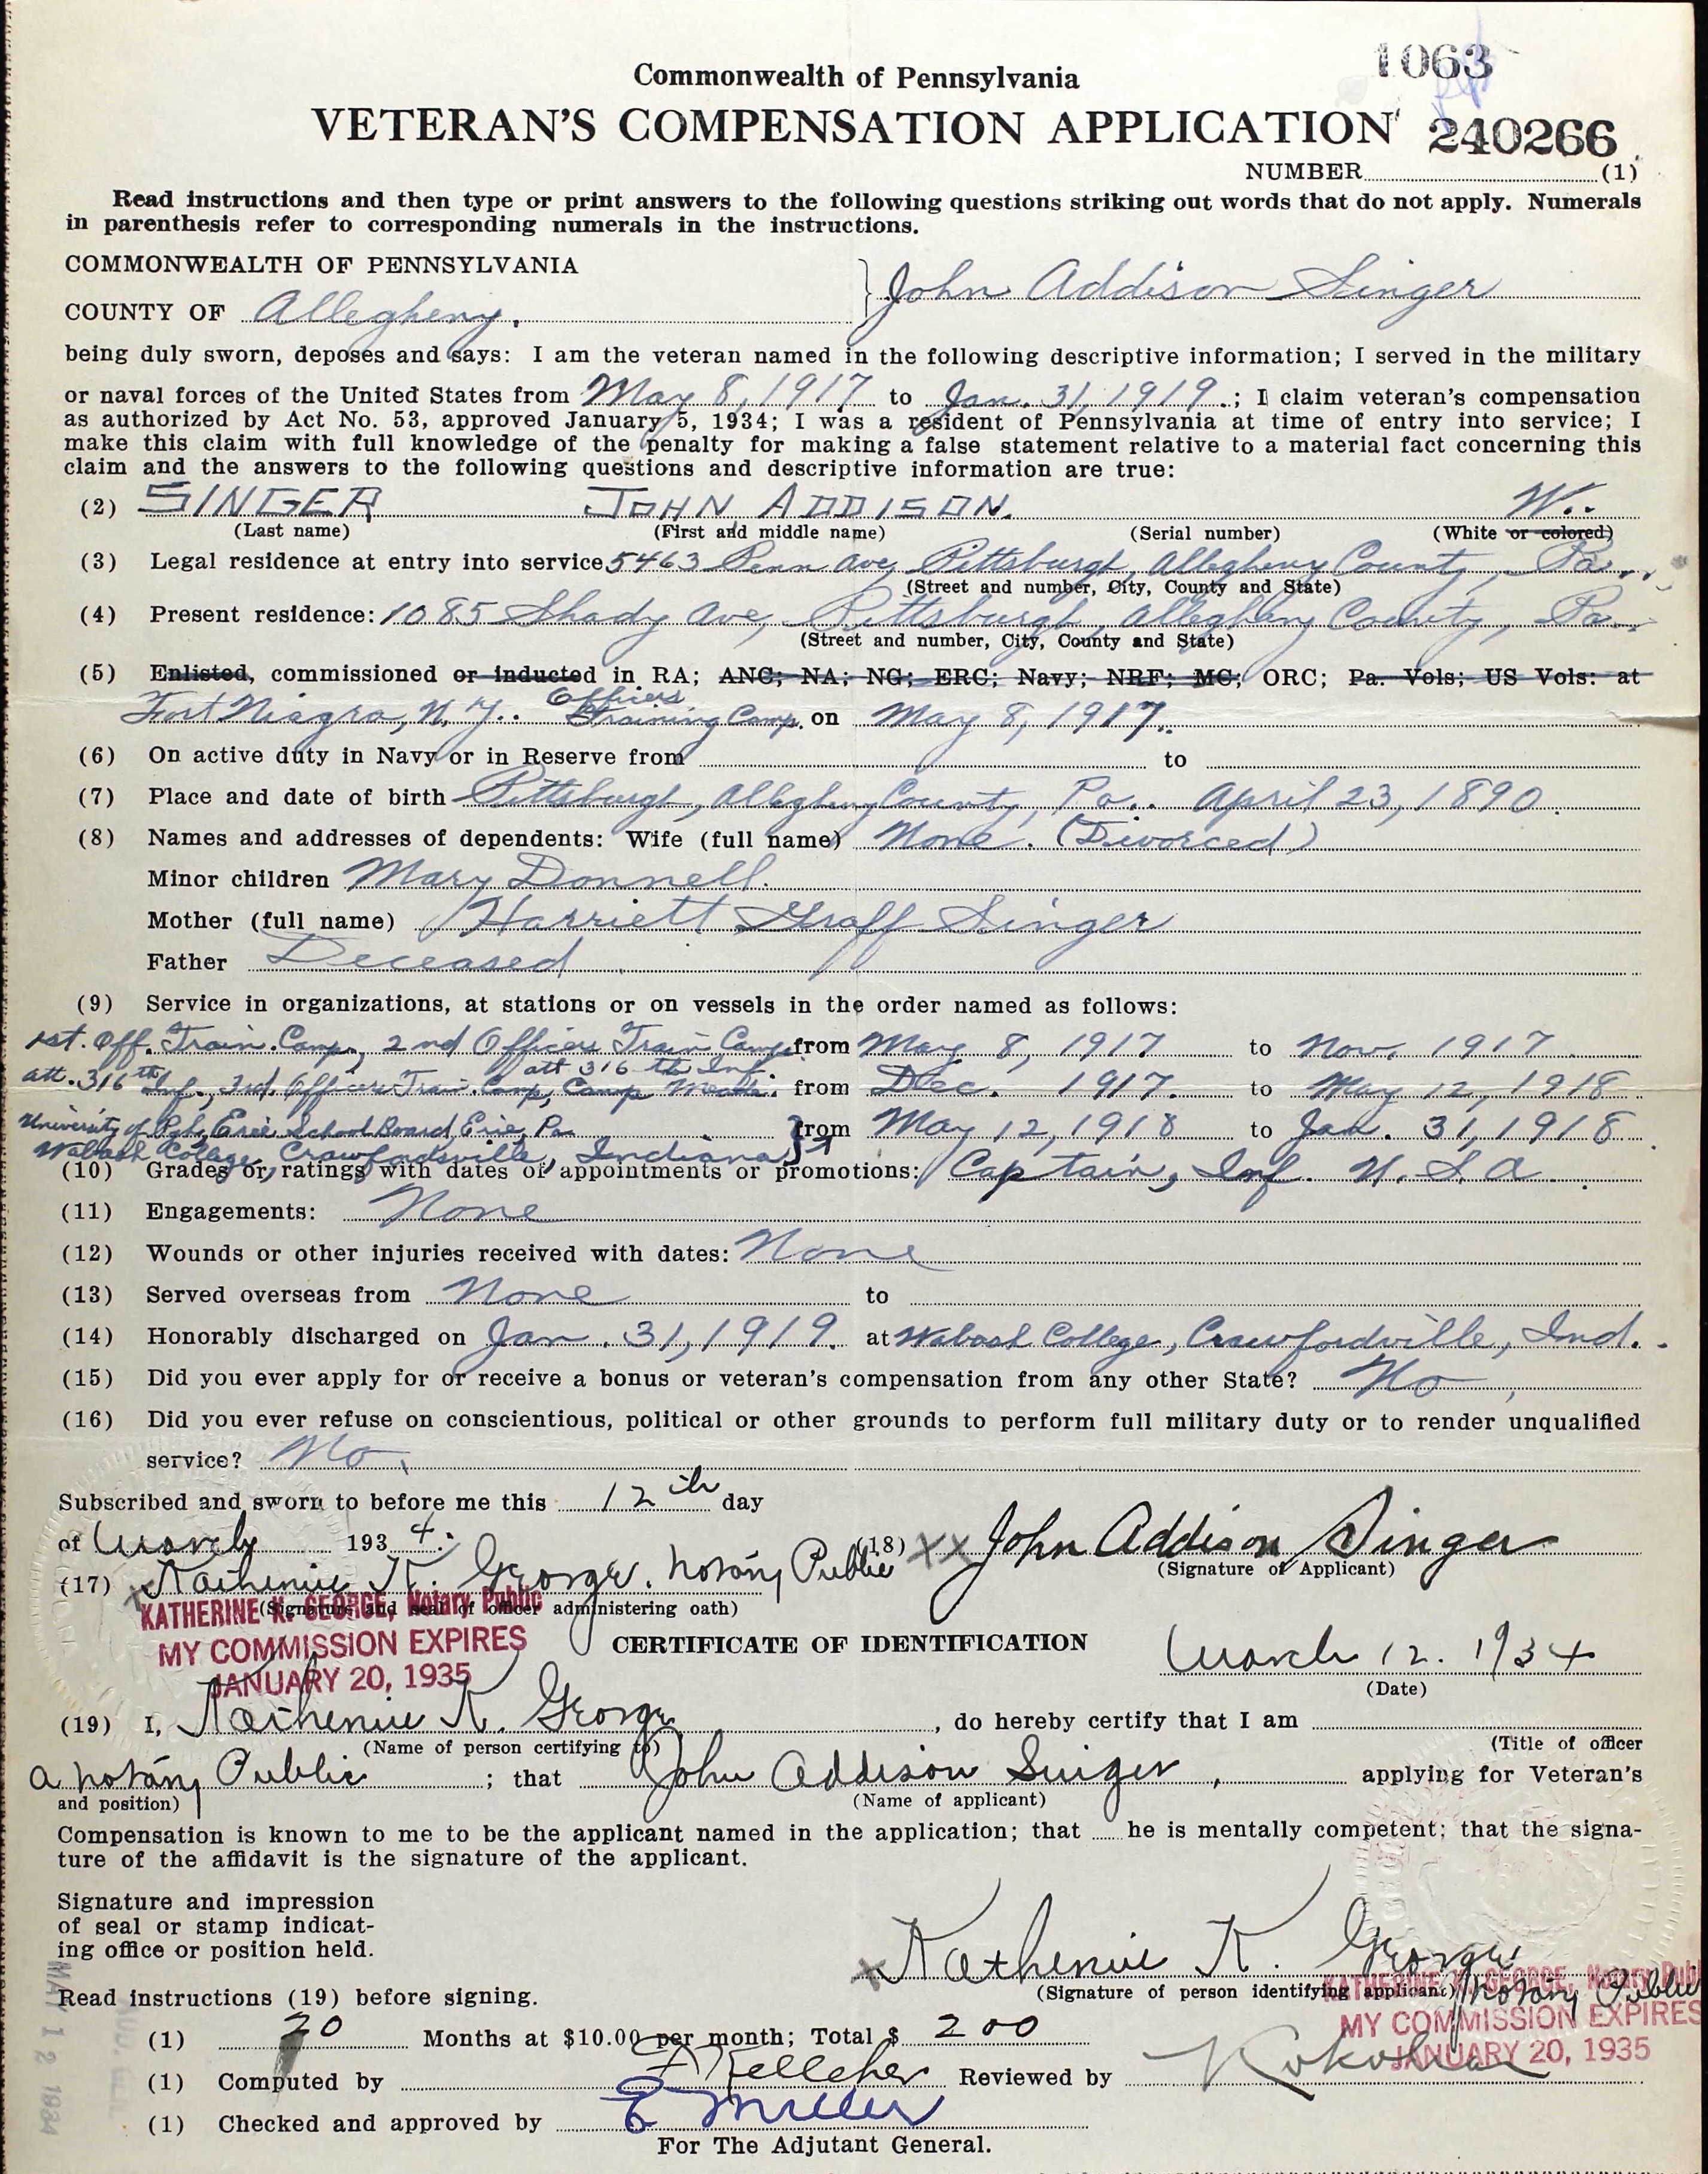 1063
Commonwealth of Pennsylvania
VETERAN'S COMPENSATION APPLICATION 240266
NUMBER (1)
Read instructions and then type or print answers to the following questions striking out words that do not apply. Numerals
in parenthesis refer to corresponding numerals in the instructions.
COMMONWEALTH OF PENNSYLVANIA
John Addison Singer
COUNTY OF Allegheny,
being duly sworn, deposes and says: I am the veteran named in the following descriptive information; I served in the military
or naval forces of the United States from May 8, 1917 to Jan. 31, 1919.; I claim veteran's compensation
as authorized by Act No. 53, approved January 5, 1934; I was a resident of Pennsylvania at time of entry into service; I
make this claim with full knowledge of the penalty for making a false statement relative to a material fact concerning this
claim and the answers to the following questions and descriptive information are true:
(2) SINGER JOHN ADDISON. W..
(Last name) (First and middle name) (Serial number) (White or colored)
(3) Legal residence at entry into service 5463 Penn Ave, Pittsburgh, Allegheny County, Pa..
(Street and number, City, County and State)
(4) Present residence: 1085 Shady Ave, Pittsburgh, Allegheny County, Pa..
(Street and number, City, County and State)
(5) Enlisted, commissioned or inducted in RA; ANC; NA; NG; ERC; Navy; NRF; MC; ORC; Pa. Vols; US Vols: at
Fort Niagra, N.Y.. Officers Training Camp. on May 8, 1917..
(6) On active duty in Navy or in Reserve from to
(7) Place and date of birth Pittsburgh, Allegheny County, Pa.. April 23, 1890.
(8) Names and addresses of dependents: Wife (full name) None. (Divorced)
Minor children Mary Donnell.
Mother (full name) Harriett Graff Singer
Father Deceased
(9) Service in organizations, at stations or on vessels in the order named as follows:
1st. Off. Train. Camp, 2nd Officers Train Camp from May 8, 1917 to Nov. 1917
att 316 th Inf.
att. 316th Inf., 3rd. Officers Train. Camp, Camp Meade. from Dec. 1917. to May 12, 1918
University of Pgh, Erie School Board, Erie, Pa from May 12, 1918 to Jan. 31, 1918.
Wabash College, Crawfordsville, Indiana
(10) Grades or ratings with dates of appointments or promotions: Captain, Inf. U.S.A.
(11) Engagements: None
(12) Wounds or other injuries received with dates: None
(13) Served overseas from None to
(14) Honorably discharged on Jan. 31, 1919. at Wabash College, Crawfordville, Ind..
(15) Did you ever apply for or receive a bonus or veteran's compensation from any other State? No,
(16) Did you ever refuse on conscientious, political or other grounds to perform full military duty or to render unqualified
service? No.
Subscribed and sworn to before me this 12th day
of March 1934.
(18) XX John Addison Singer
(Signature of Applicant)
(17) x Katherine K. George. Notary Public
(Signature and seal of officer administering oath)
KATHERINE K. GEORGE, Notary Public
MY COMMISSION EXPIRES
JANUARY 20, 1935
CERTIFICATE OF IDENTIFICATION
March 12. 1934
(Date)
(19) I, Katherine K. George, do hereby certify that I am
(Name of person certifying to) (Title of officer
a Notary Public; that John Addison Singer, applying for Veteran's
and position) (Name of applicant)
Compensation is known to me to be the applicant named in the application; that he is mentally competent; that the signa-
ture of the affidavit is the signature of the applicant.
Signature and impression
of seal or stamp indicat-
ing office or position held.
x Katherine K. George
Notary Public
(Signature of person identifying applicant)
KATHERINE K. GEORGE, Notary Public
MY COMMISSION EXPIRES
JANUARY 20, 1935
Read instructions (19) before signing.
(1) 20 Months at $10.00 per month; Total $ 200
(1) Computed by Kelleher Reviewed by
(1) Checked and approved by E Miller
For The Adjutant General.
MAY 12 1934